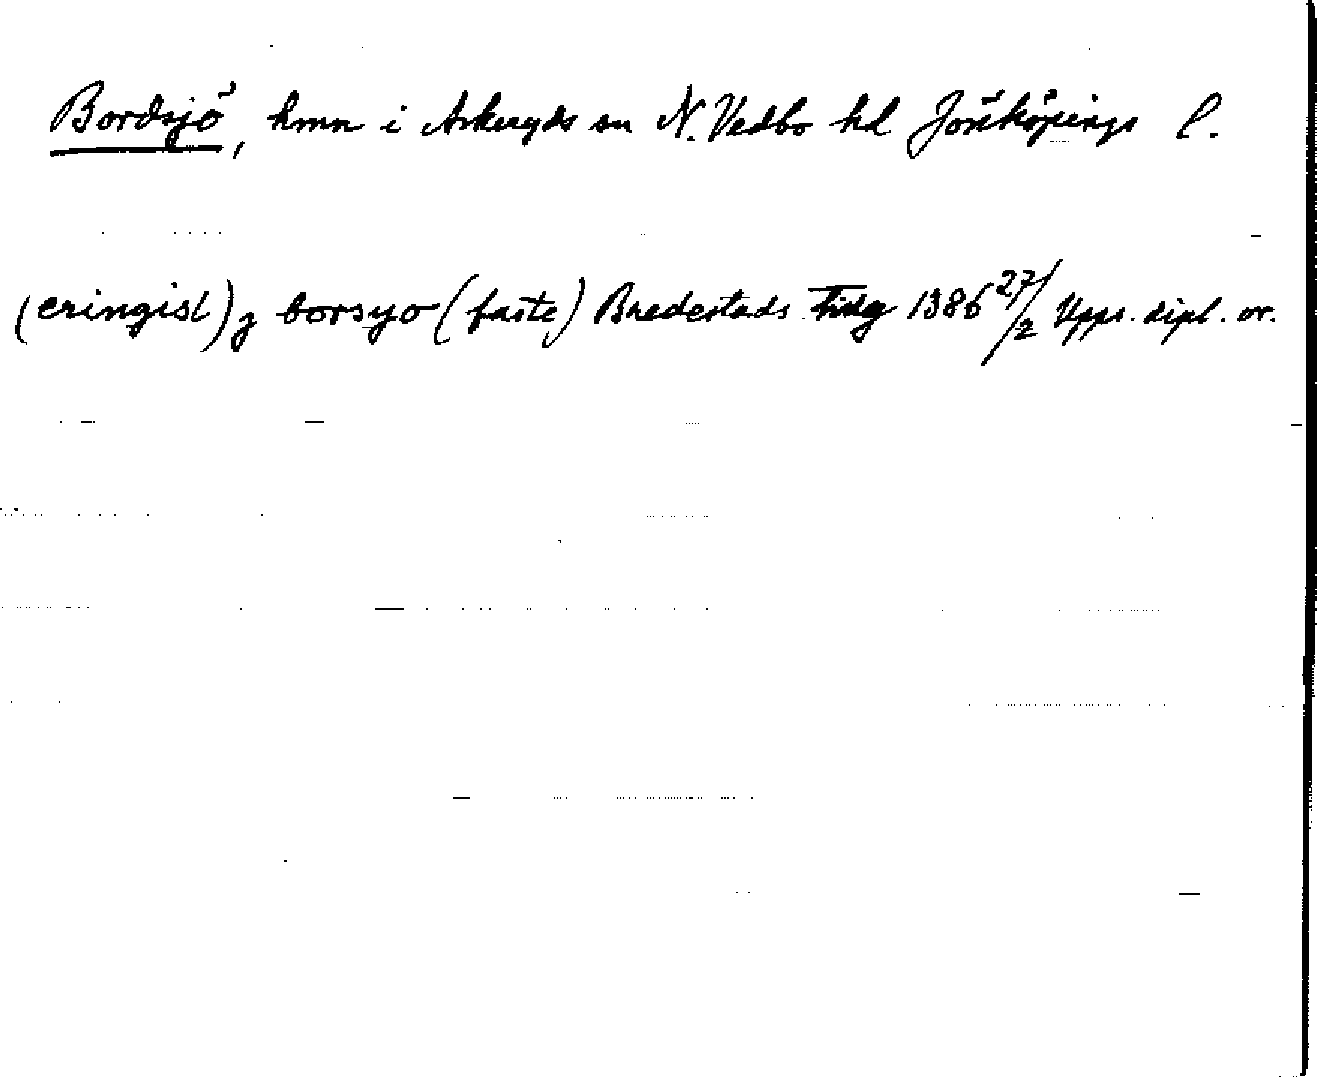 Bordsjö, hmn i Askeryds sn N. Vedbo hd Jönköpings l.
(eringisl) j borsyo (faste) Bredestads 1386 27/2 Upps. dipl. or.